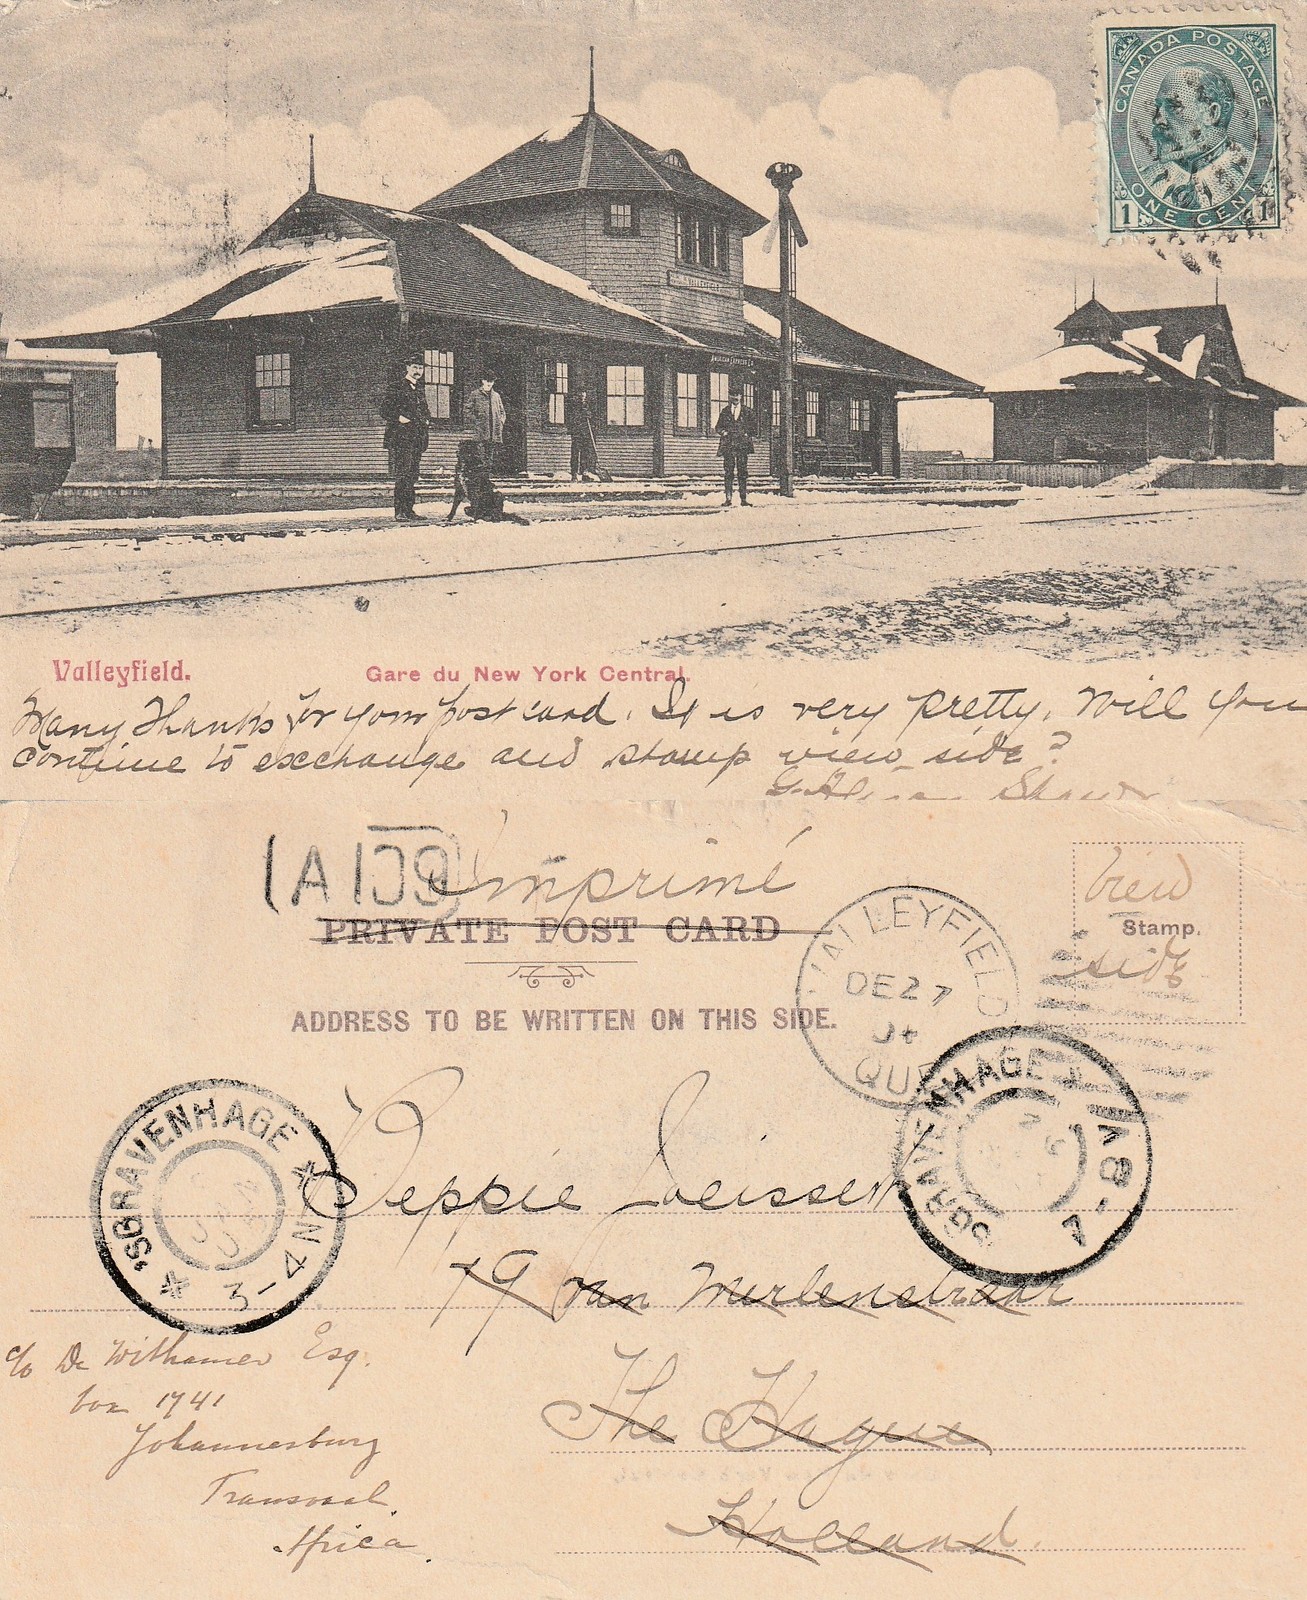 CANADA POSTAGE
ONE CENT
1 1
VALLEYFIELD
AMERICAN EXPRESS CO.
Valleyfield. Gare du New York Central.
Many Thanks for your post card. It is very pretty. Will you
continue to exchange and stamp view side?
Imprimé
PRIVATE POST CARD
view
Stamp.
side
ADDRESS TO BE WRITTEN ON THIS SIDE.
VALLEYFIELD
DE 27
04
QUE
'SGRAVENHAGE
3-4 N
'SGRAVENHAGE
7-8V
Beppie
79 van Merlenstraat
The Hague
Holland.
c/o De Withamer Esq.
box 1741
Johannesburg
Transvaal.
Africa.